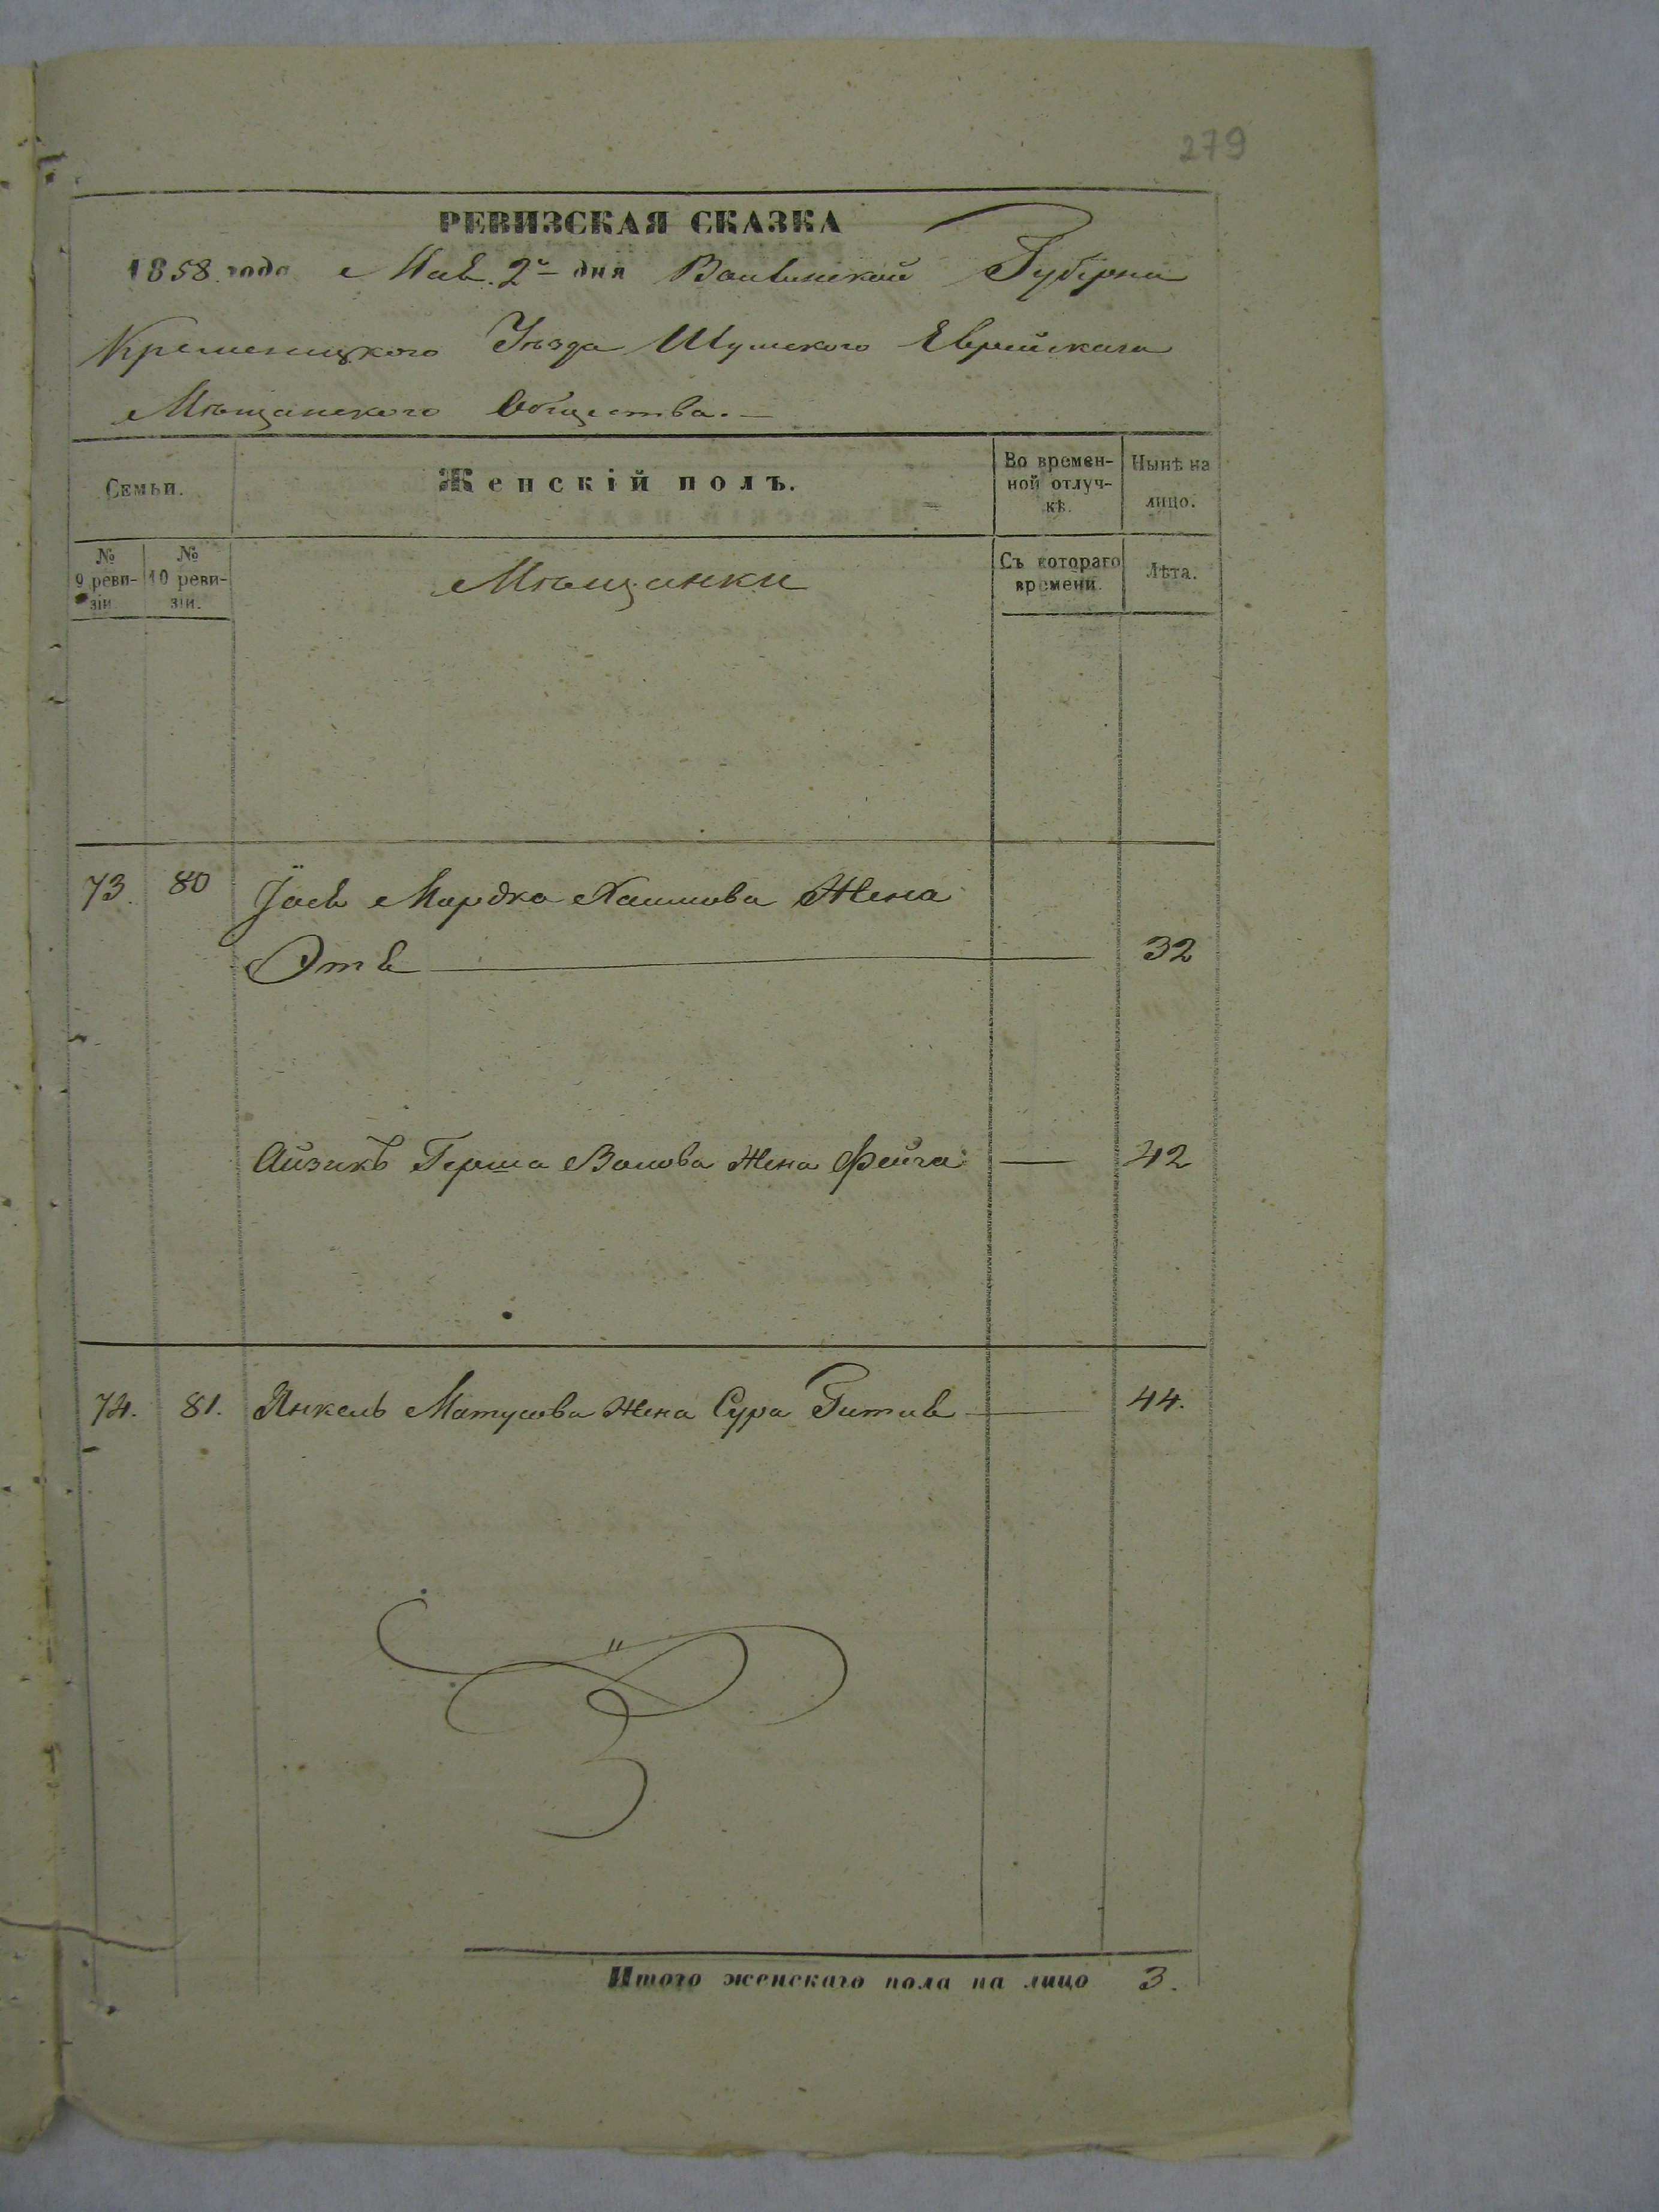 279
РЕВИЗСКАЯ СКАЗКА
1858 года Мая 2го дня Волынской Губерніи
Кременецкого Уѣзда Шумского Еврейскаго
Мѣщанского Общества.—
Семьи.
Женскій полъ.
Во времен-
ной отлуч-
кѣ.
Нынѣ на
лицо.
№
9 реви-
зіи.
№
10 реви-
зіи.
Мѣщанки
Съ котораго
времени.
Лѣта.
73. 80 Мордко Хаимова Жена
Этя 32
Айзикъ Герша Вольова Жена Фейга 42
74. 81. Янкель Матусова Жена Сура Гитля 44.
Итого женскаго пола на лицо 3.